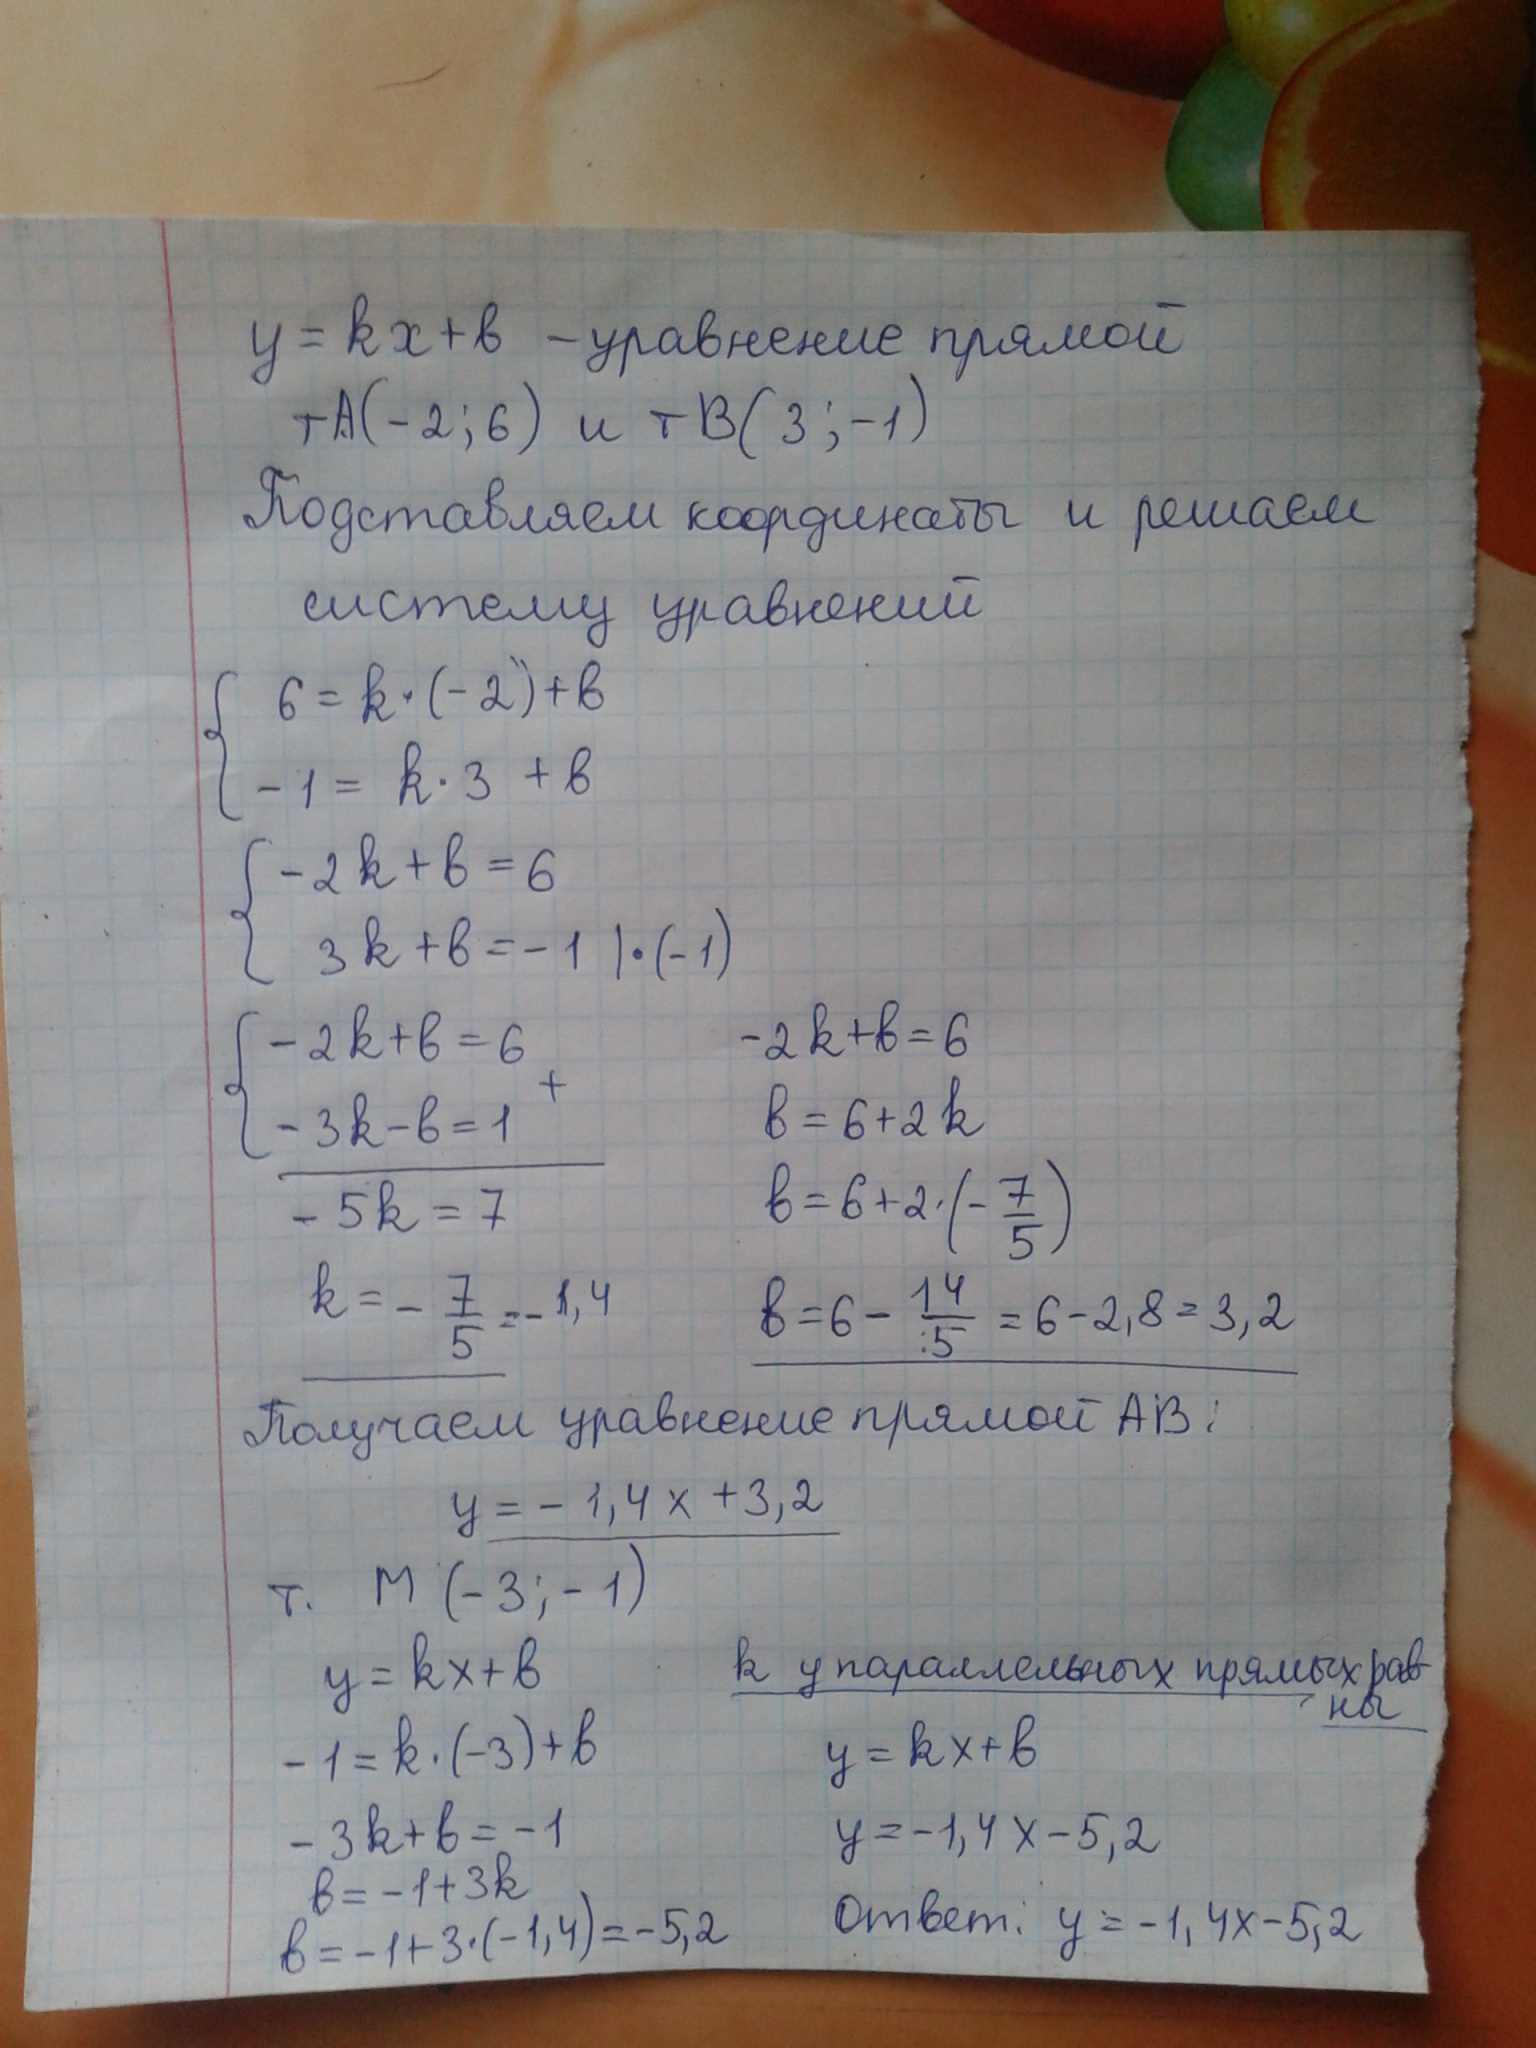 y = kx + b - уравнение прямой
тA(-2; 6) и тB(3; -1)
Подставляем координаты и решаем
систему уравнений
6 = k·(-2) + b
-1 = k·3 + b
-2k + b = 6
3k + b = -1 |·(-1)
-2k + b = 6
+
-3k - b = 1
-5k = 7
k = -7/5 = -1,4
-2k + b = 6
b = 6 + 2k
b = 6 + 2·(-7/5)
b = 6 - 14/5 = 6 - 2,8 = 3,2
Получаем уравнение прямой AB:
y = -1,4x + 3,2
т. M (-3; -1)
y = kx + b
-1 = k·(-3) + b
-3k + b = -1
b = -1 + 3k
b = -1 + 3·(-1,4) = -5,2
k у параллельных прямых рав-
ны
y = kx + b
y = -1,4x - 5,2
Ответ: y = -1,4x - 5,2